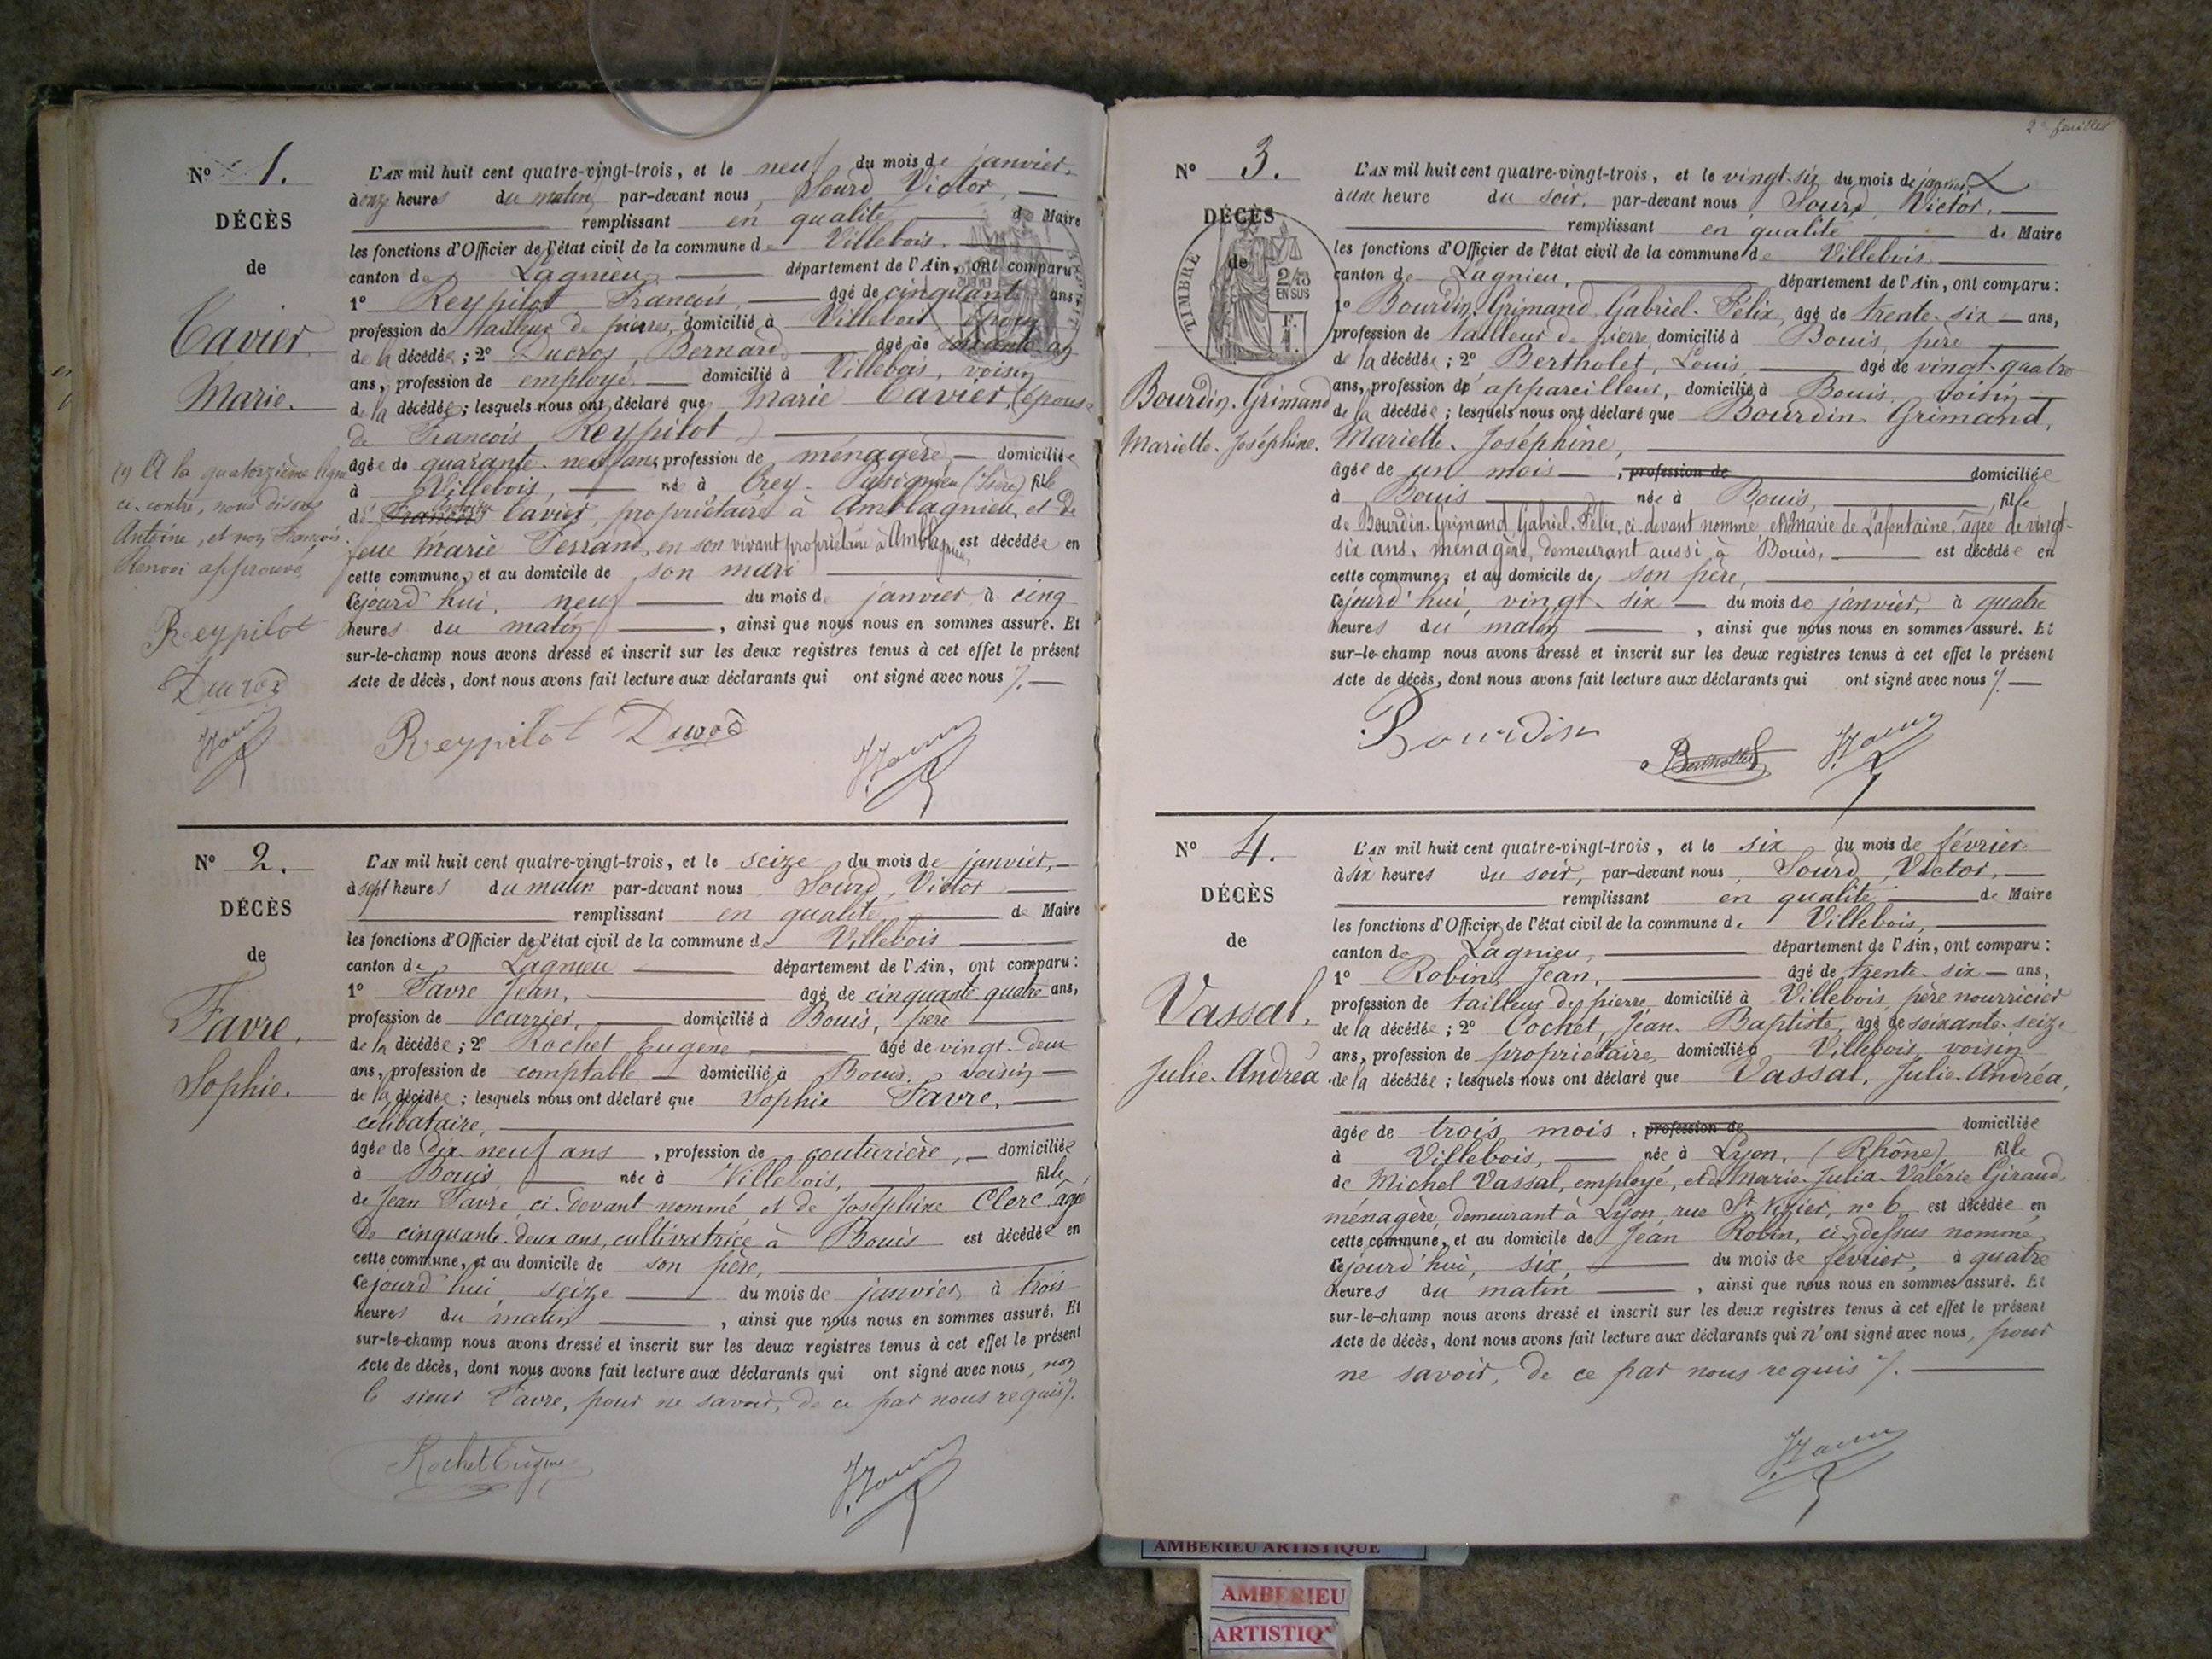 No 1.
DÉCÈS
de
Cavier
Marie.
(1) A la quatorzième ligne
ci-contre, nous disons
Antoine, et non François.
Renvoi approuvé,
Reypilot
L'AN mil huit cent quatre-vingt-trois, et le neuf du mois de janvier,
à onze heures du matin, par-devant nous Sourd Victor,
remplissant en qualité de Maire
les fonctions d'Officier de l'état civil de la commune de Villebois.
canton de Lagnieu, département de l'Ain, ont comparu
1o Reypilot François, âgé de cinquante ans,
profession de tailleur de pierres, domicilié à Villebois époux
de la décédée ; 2o Ducros Bernard âgé de
ans, profession de employé domicilié à Villebois, voisin
de la décédée ; lesquels nous ont déclaré que Marie Cavier, (épouse
de François Reypilot)
âgée de quarante-neuf ans profession de ménagère, domiciliée
à Villebois, née à Creys-Pusignieu (Isère) fille
de François Antoine Cavier, propriétaire à Amblagnieu, et de
feue Marie Ferrand, en son vivant propriétaire à Amblagnieu, est décédée en
cette commune, et au domicile de son mari
cejourd'hui, neuf du mois de janvier à cinq
heures du matin, ainsi que nous nous en sommes assuré. Et
sur-le-champ nous avons dressé et inscrit sur les deux registres tenus à cet effet le présent
Acte de décès, dont nous avons fait lecture aux déclarants qui ont signé avec nous ⁒.
Reypilot
No 2.
DÉCÈS
de
Favre.
Sophie.
L'AN mil huit cent quatre-vingt-trois, et le seize du mois de janvier,
à sept heures du matin par-devant nous Sourd, Victor
remplissant en qualité de Maire
les fonctions d'Officier de l'état civil de la commune de Villebois
canton de Lagnieu département de l'Ain, ont comparu :
1o Favre Jean, âgé de cinquante quatre ans,
profession de carrier, domicilié à Bouis, père
de la décédée ; 2o Rochet Eugène âgé de vingt-deux
ans, profession de comptable domicilié à Bouis, voisin
de la décédée ; lesquels nous ont déclaré que Sophie Favre,
célibataire,
âgée de dix-neuf ans, profession de couturière, domiciliée
à Bouis née à Villebois, fille
de Jean Favre, ci-devant nommé et de Joséphine Clerc âgée
de cinquante-deux ans, cultivatrice à Bouis est décédée en
cette commune, et au domicile de son père,
cejourd'hui, seize du mois de janvier à trois
heures du matin, ainsi que nous nous en sommes assuré. Et
sur-le-champ nous avons dressé et inscrit sur les deux registres tenus à cet effet le présent
Acte de décès, dont nous avons fait lecture aux déclarants qui ont signé avec nous, non
le sieur Favre, pour ne savoir, de ce par nous requis ⁒.
Rochet Eugène
2e feuillet
No 3.
DÉCÈS
de
TIMBRE
2/10
EN SUS
F.
1.
Bourdin-Grimand
Mariette-Joséphine.
L'AN mil huit cent quatre-vingt-trois, et le vingt-six du mois de janvier
à une heure du soir, par-devant nous Sourd, Victor,
remplissant en qualité de Maire
les fonctions d'Officier de l'état civil de la commune de Villebois
canton de Lagnieu, département de l'Ain, ont comparu :
1o Bourdin-Grimand, Gabriel-Félix, âgé de trente-six ans,
profession de tailleur de pierre, domicilié à Bouis, père
de la décédée ; 2o Bertholet, Louis, âgé de vingt-quatre
ans, profession d'appareilleur, domicilié à Bouis voisin
de la décédée ; lesquels nous ont déclaré que Bourdin-Grimand,
Mariette-Joséphine,
âgée de un mois, profession de domiciliée
à Bouis née à Bouis, fille
de Bourdin-Grimand, Gabriel-Félix, ci-devant nommé, et Marie de Lafontaine, âgée de vingt-
six ans, ménagère, demeurant aussi à Bouis, est décédée en
cette commune, et au domicile de son père,
cejourd'hui, vingt-six du mois de janvier, à quatre
heures du matin, ainsi que nous nous en sommes assuré. Et
sur-le-champ nous avons dressé et inscrit sur les deux registres tenus à cet effet le présent
Acte de décès, dont nous avons fait lecture aux déclarants qui ont signé avec nous ⁒.
Bourdin
No 4.
DÉCÈS
de
Vassal.
Julie-Andréa
L'AN mil huit cent quatre-vingt-trois, et le six du mois de février
à six heures du soir, par-devant nous, Sourd, Victor,
remplissant en qualité de Maire
les fonctions d'Officier de l'état civil de la commune de Villebois,
canton de Lagnieu, département de l'Ain, ont comparu :
1o Robin, Jean, âgé de trente-six ans,
profession de tailleur de pierre, domicilié à Villebois père nourricier
de la décédée ; 2o Cochet, Jean-Baptiste, âgé de soixante-seize
ans, profession de propriétaire, domicilié à Villebois, voisin
de la décédée ; lesquels nous ont déclaré que Vassal, Julie-Andréa,
âgée de trois mois, profession de domiciliée
à Villebois, née à Lyon, (Rhône) fille
de Michel Vassal, employé, et de Marie-Julia-Valérie Giraud,
ménagère, demeurant à Lyon, rue St Nizier, no 6 est décédée en
cette commune, et au domicile de Jean Robin, ci-dessus nommé,
cejourd'hui, six, du mois de février, à quatre
heures du matin, ainsi que nous nous en sommes assuré. Et
sur-le-champ nous avons dressé et inscrit sur les deux registres tenus à cet effet le présent
Acte de décès, dont nous avons fait lecture aux déclarants qui n'ont signé avec nous, pour
ne savoir, de ce par nous requis ⁒.
AMBERIEU ARTISTIQUE
AMBERIEU
ARTISTIQ